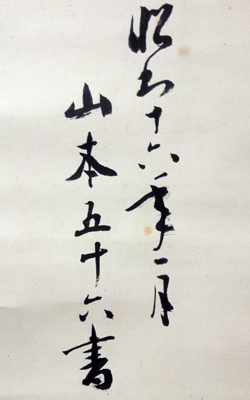 昭和十六年一月
山本五十六書